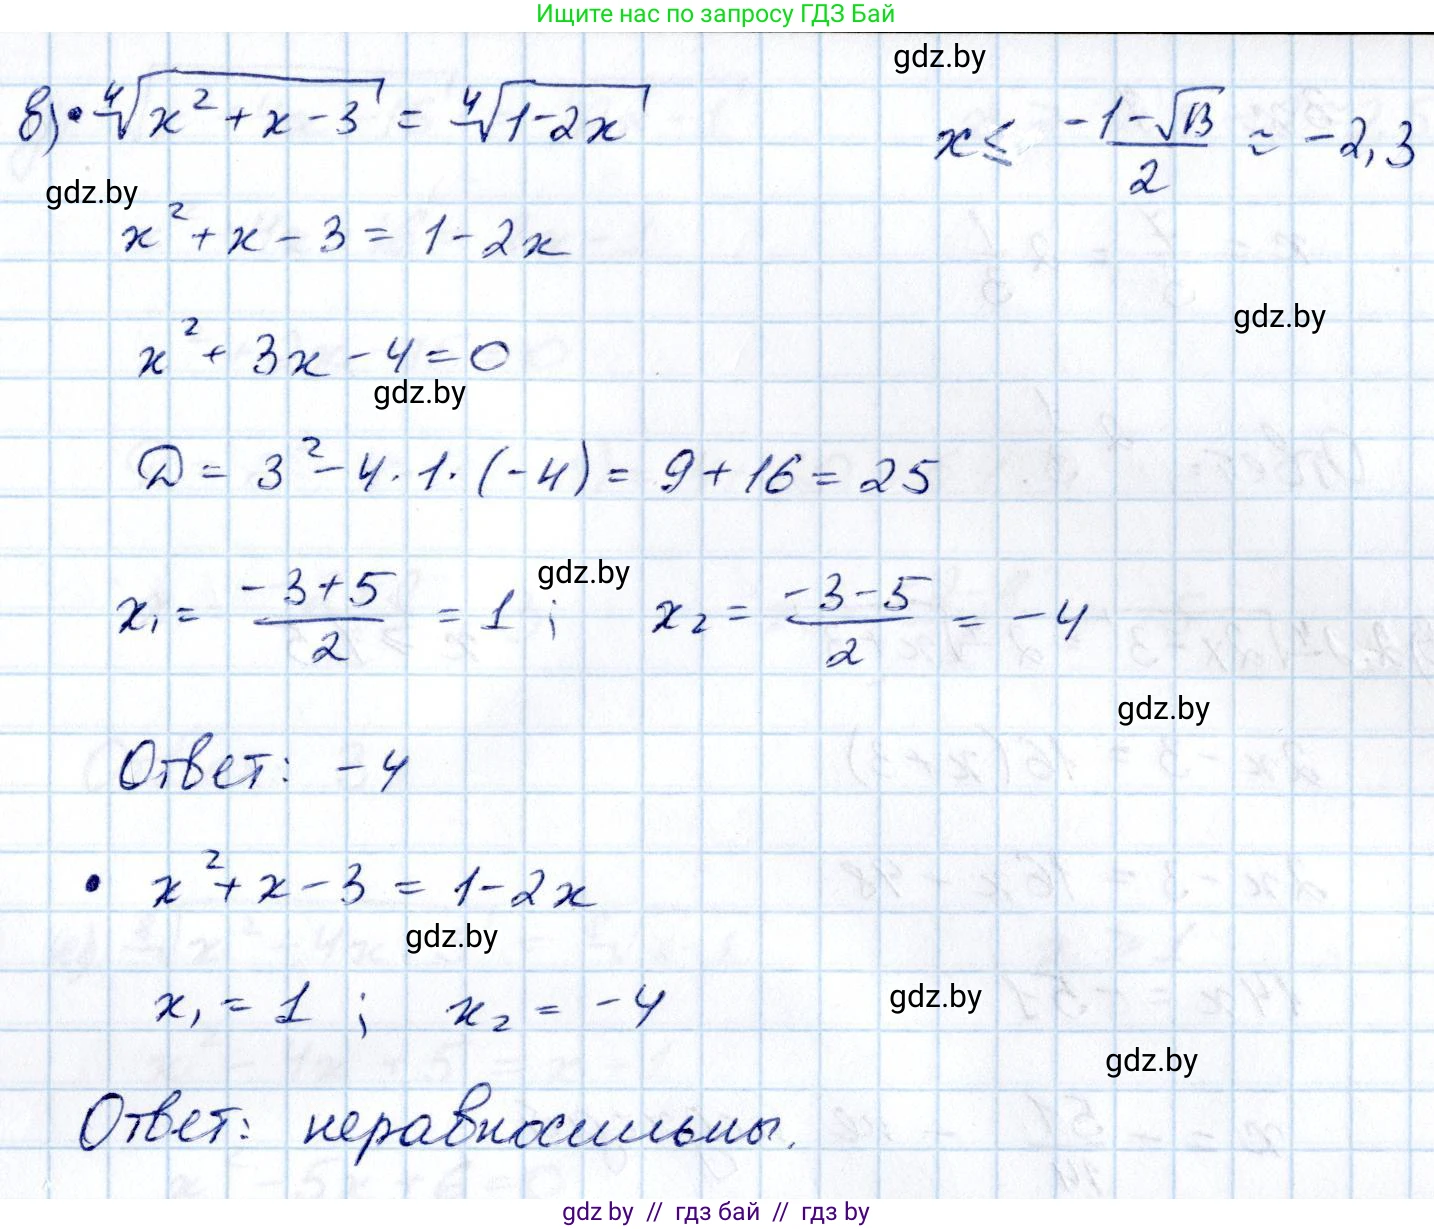 Ищите нас по запросу ГДЗ Бай
gdz.by
в) • ⁴√(x² + x - 3) = ⁴√(1 - 2x)
x ≤ (-1 - √13)/2 ≈ -2,3
gdz.by
x² + x - 3 = 1 - 2x
gdz.by
x² + 3x - 4 = 0
gdz.by
D = 3² - 4 · 1 · (-4) = 9 + 16 = 25
gdz.by
x₁ = (-3 + 5)/2 = 1 ; x₂ = (-3 - 5)/2 = -4
gdz.by
Ответ: -4
• x² + x - 3 = 1 - 2x
gdz.by
x₁ = 1 ; x₂ = -4
gdz.by
gdz.by
Ответ: неравносильны.
gdz.by // гдз бай // гдз by